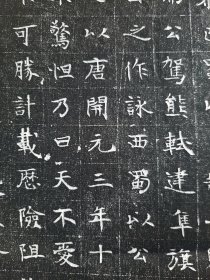 公駕熊軾建隼旗
之作詠西蜀以公
以唐開元三年十
驚怛乃曰天不愛
可勝計載歷險阻